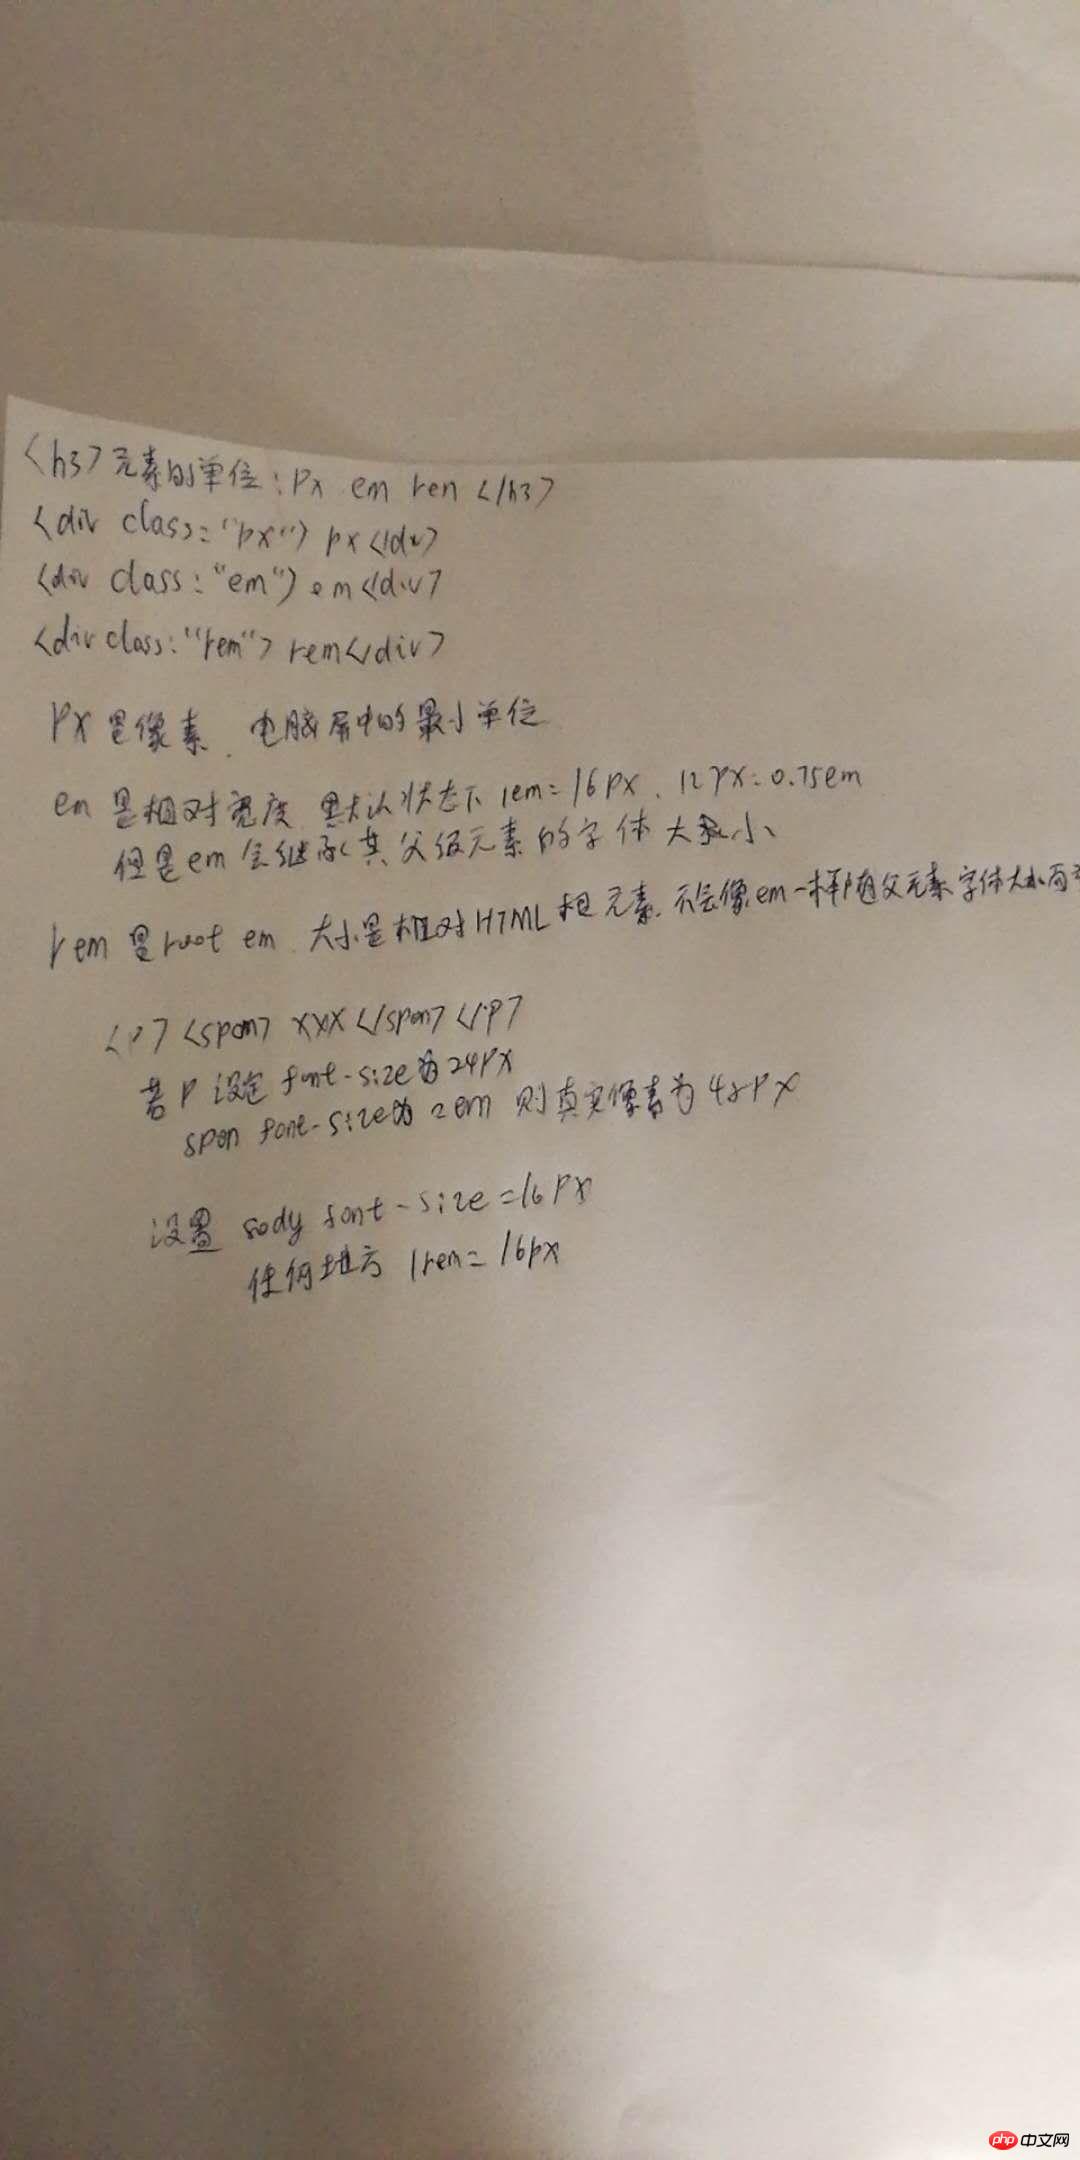 <h3>元素的单位:px em ren </h3>
<div class="px") px </div>
<div class:"em") em </div>
<div class:"rem"> rem </div>
px是像素、电脑屏中的最小单位
em是相对宽度 默认状态下 1em=16px、12px=0.75em
但是em会继承其父级元素的字体大小
rem是root em 大小是相对HTML根元素、不会像em一样随父元素字体大小而
<p> <span> xxx </span> </p>
若p设定font-size为24px
span font-size为2em 则真实像素为48px
设置 body font-size=16px
任何地方 1rem=16px
php 中文网